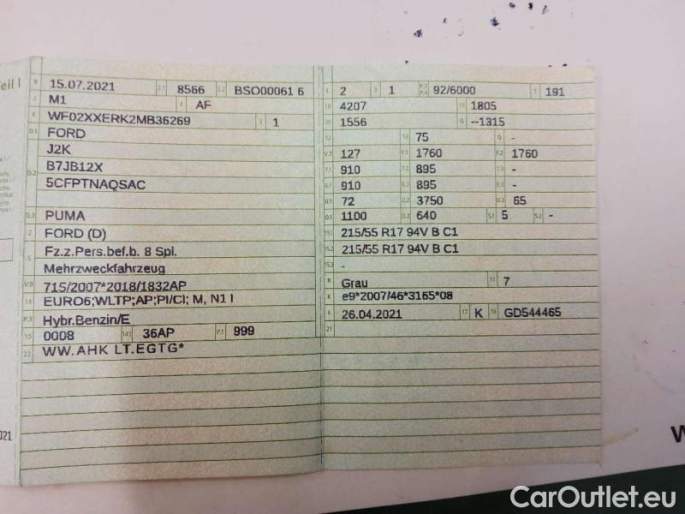 eil I
15.07.2021 8566 BSO00061 6
M1 AF
WF02XXERK2MB36269 1
FORD
J2K
B7JB12X
5CFPTNAQSAC
PUMA
FORD (D)
Fz.z.Pers.bef.b. 8 Spl.
Mehrzweckfahrzeug
715/2007*2018/1832AP
EURO6;WLTP;AP;PI/CI; M, N1 I
Hybr.Benzin/E
0008 36AP 999
WW.AHK LT.EGTG*
2 1 92/6000 191
4207 1805
1556 --1315
75 -
127 1760 1760
910 895 -
910 895 -
72 3750 65
1100 640 5 -
215/55 R17 94V B C1
215/55 R17 94V B C1
-
Grau 7
e9*2007/46*3165*08
26.04.2021 K GD544465
021
W
CarOutlet.eu